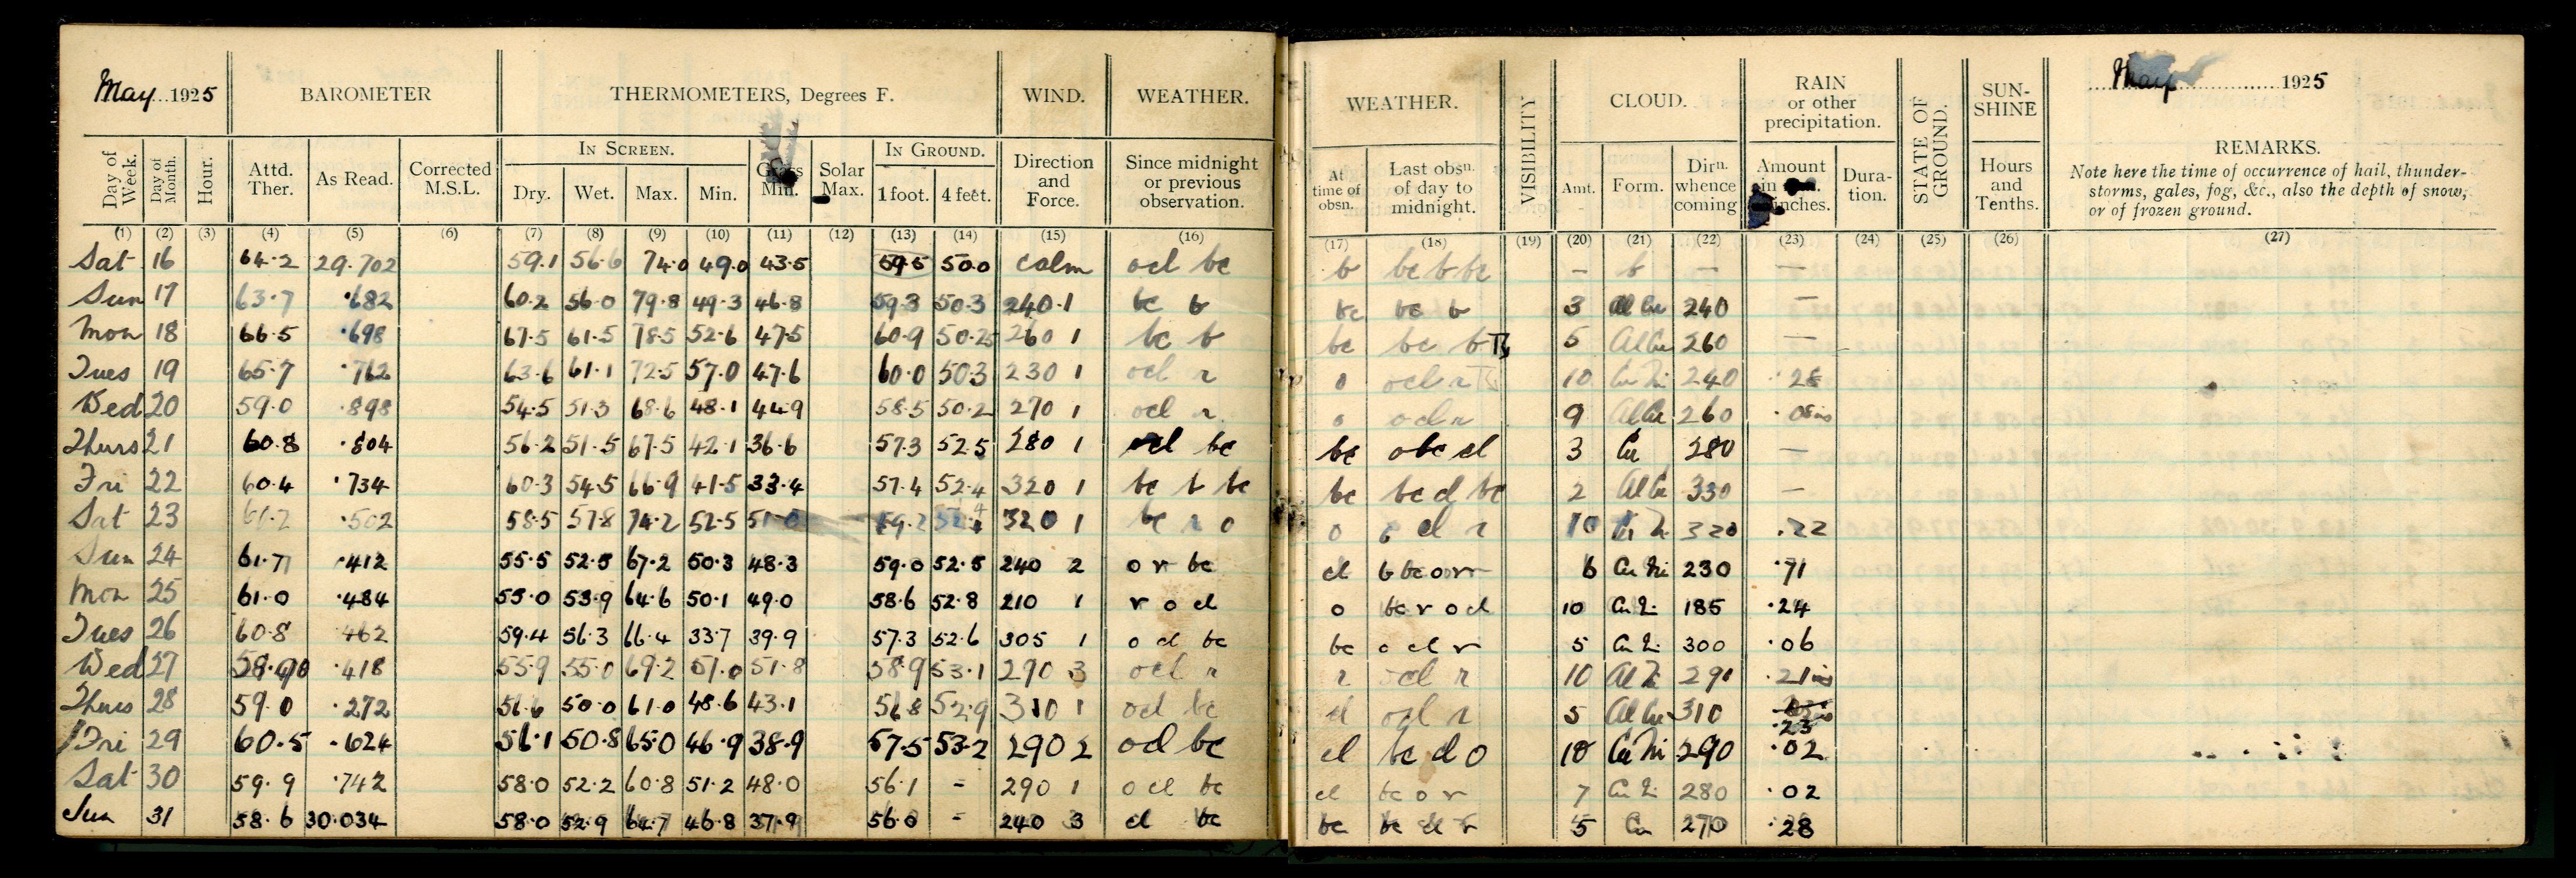 May 1925 BAROMETER THERMOMETERS, Degrees F. WIND. WEATHER.
Day of Week. Day of Month. Hour. Attd. Ther. As Read. Corrected M.S.L. IN SCREEN. Dry. Wet. Max. Min. Grass Min. Solar Max. IN GROUND. 1 foot. 4 feet. Direction and Force. Since midnight or previous observation.
(1) (2) (3) (4) (5) (6) (7) (8) (9) (10) (11) (12) (13) (14) (15) (16)
Sat 16 64.2 29.702 59.1 56.6 74.0 49.0 43.5 59.5 50.0 calm od bc
Sun 17 63.7 .682 60.2 56.0 79.8 49.3 46.8 59.3 50.3 240.1 bc b
Mon 18 66.5 .698 67.5 61.5 78.5 52.6 47.5 60.9 50.25 260 1 bc b
Tues 19 65.7 .762 63.6 61.1 72.5 57.0 47.6 60.0 50.3 230 1 od r
Wed 20 59.0 .898 54.5 51.3 68.6 48.1 44.9 58.5 50.2 270 1 od r
Thurs 21 60.8 .804 56.2 51.5 67.5 42.1 36.6 57.3 52.5 280 1 od bc
Fri 22 60.4 .734 60.3 54.5 66.9 41.5 33.4 57.4 52.4 320 1 bc b bc
Sat 23 61.2 .502 58.5 57.8 74.2 52.5 51.0 59.2 320 1 bc r o
Sun 24 61.7 .412 55.5 52.5 67.2 50.3 48.3 59.0 52.5 240 2 o r bc
Mon 25 61.0 .484 55.0 53.9 64.6 50.1 49.0 58.6 52.8 210 1 r o d
Tues 26 60.8 .462 59.4 56.3 66.4 33.7 39.9 57.3 52.6 305 1 o d bc
Wed 27 .418 55.9 55.0 69.2 51.0 51.8 58.9 53.1 290 3 od r
Thurs 28 59.0 .272 56.6 50.0 61.0 48.6 43.1 56.8 52.9 310 1 od bc
Fri 29 60.5 .624 56.1 50.8 65.0 46.9 38.9 57.5 53.2 290 2 od bc
Sat 30 59.9 .742 58.0 52.2 60.8 51.2 48.0 56.1 - 290 1 o d bc
Sun 31 58.6 30.034 58.0 52.9 64.7 46.8 37.9 56.0 - 240 3 d bc
WEATHER. VISIBILITY CLOUD. RAIN or other precipitation. STATE OF GROUND. SUN-SHINE May 1925
At time of obsn. Last obsn. of day to midnight. Amt. Form. Dirn. whence coming Amount in inches. Duration. Hours and Tenths. REMARKS.
Note here the time of occurrence of hail, thunder-
storms, gales, fog, &c., also the depth of snow,
or of frozen ground.
(17) (18) (19) (20) (21) (22) (23) (24) (25) (26) (27)
b bc b bc — b — —
bc bc b 3 Al Cu 240 —
bc bc b 5 Al Cu 260 —
o od r 10 Cu Ni 240 .28
o od r 9 Al Cu 260 .08 ins
bc o bc d 3 Cu 280 —
bc bc d bc 2 Al Cu 330 —
o o d r 10 Cu Ni 320 .22
d b bc o r r 6 Cu Ni 230 .71
o bc r o d 10 Cu Ni 185 .24
bc o d r 5 Cu Ni 300 .06
r od r 10 Al Ni 291 .21 ins
d od r 5 Al Cu 310 .23
d bc d o 10 Cu Ni 290 .02
d bc o r 7 Cu Ni 280 .02
bc bc d r 5 Cu 270 .28